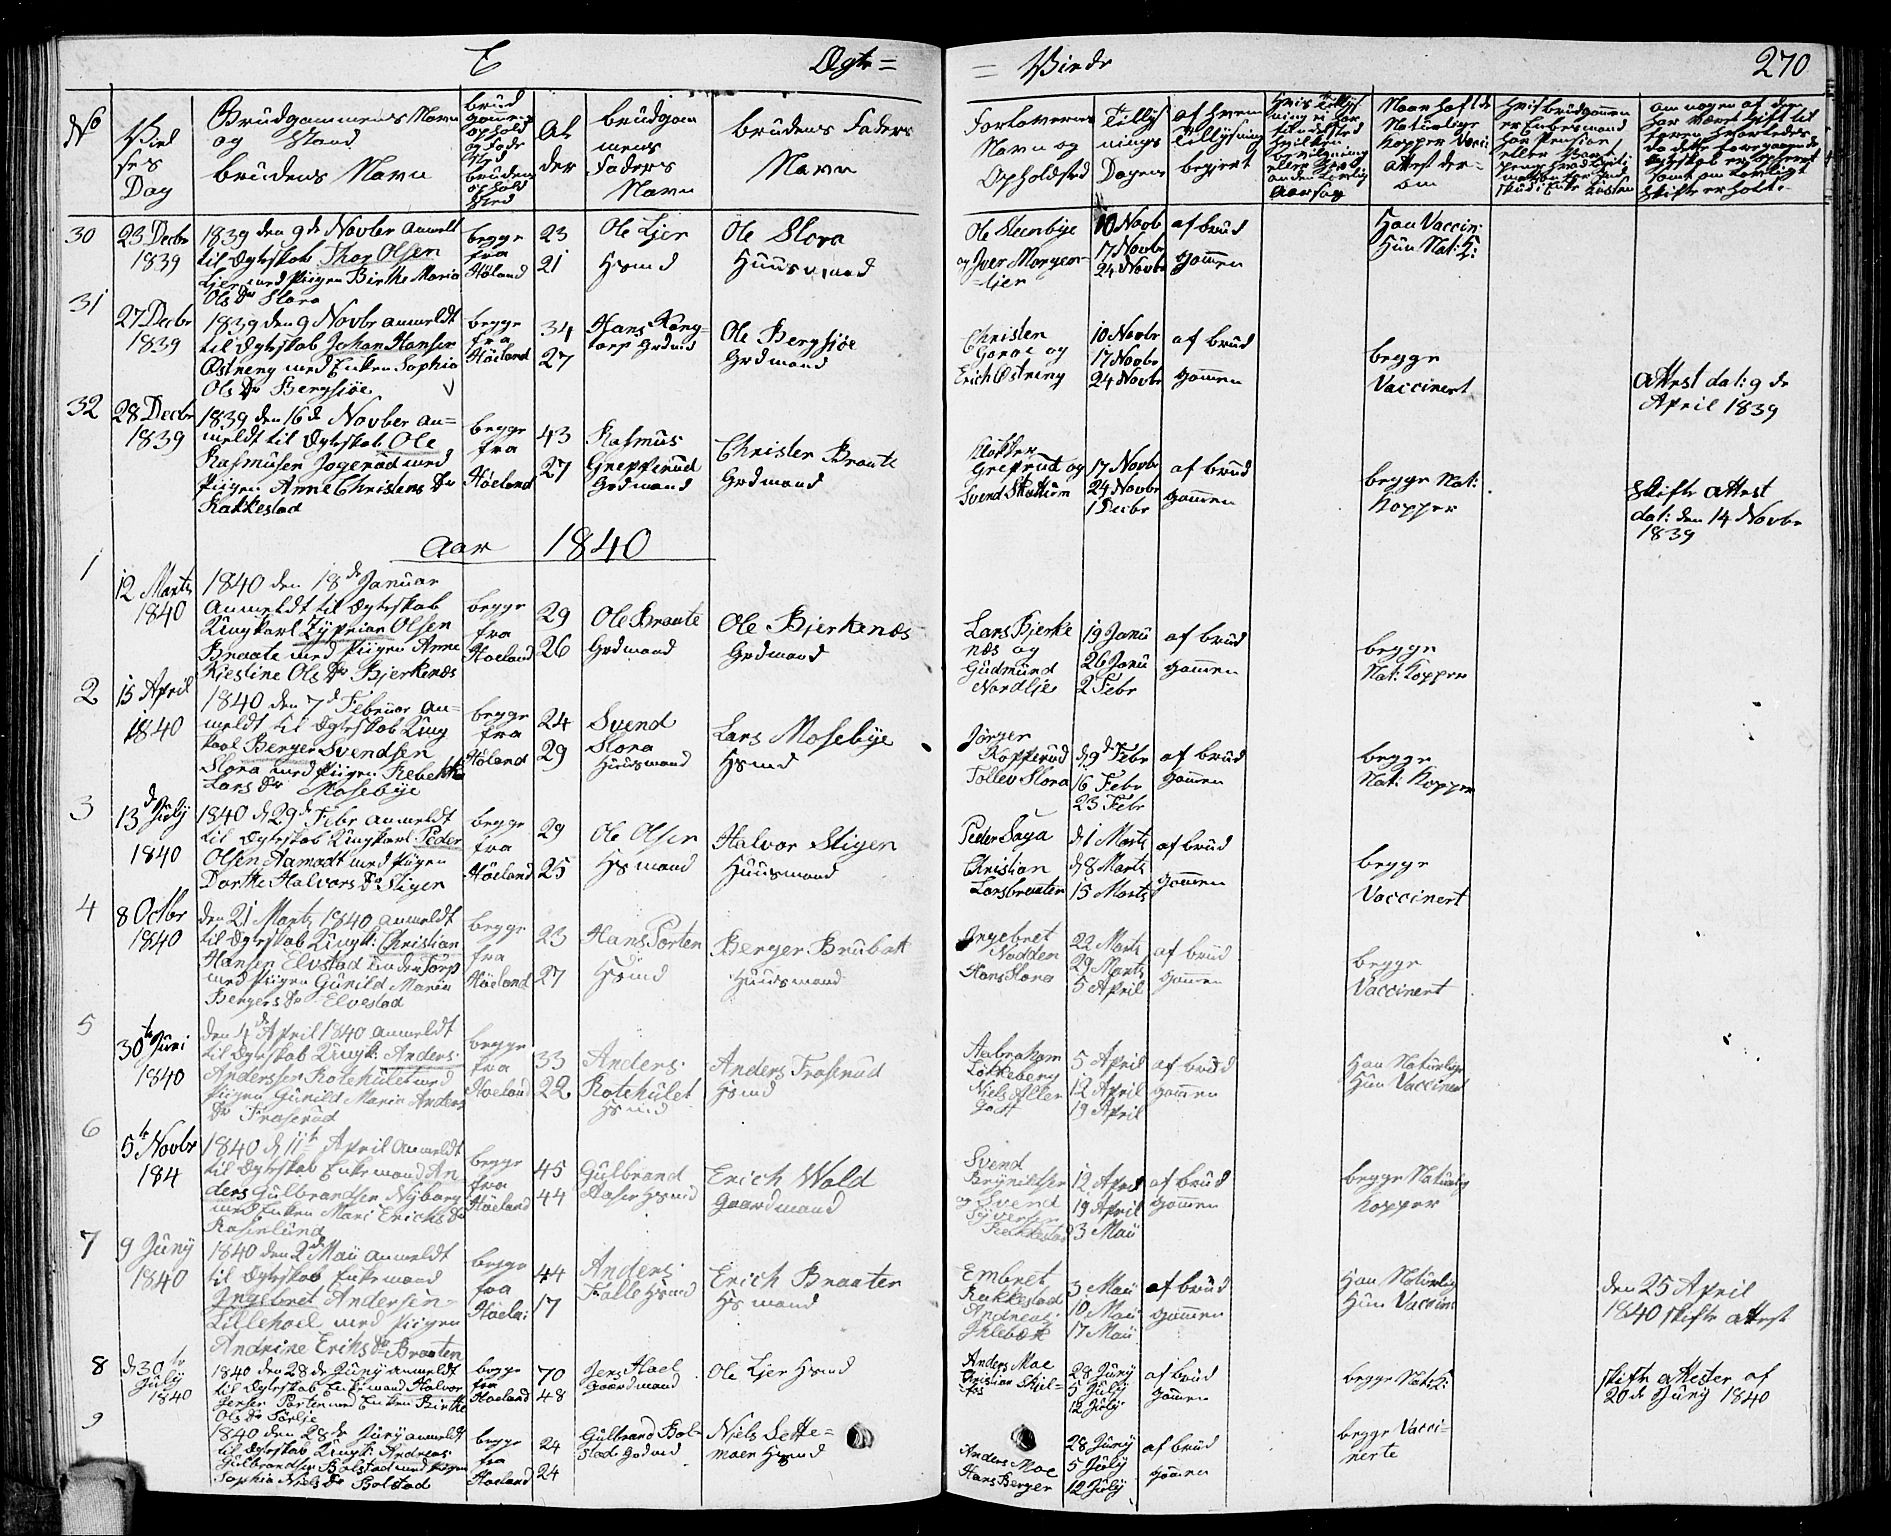 E Ægte= = Viede 270
No
Viel
ses
Dag
Brudgommens Navn
og Stand
brudens Navn
brud
gommens
ophold
og Føde
Sted
brudens
ophold
Sted
Al
der
brudgom
mens
Faders
Navn
brudens Faders
Navn
Forlovernes
Navn og
Opholdsted
Tillys
nings
Dagene
af hvem
Tillysning
begjert
Naar havte
Naturlige
Kopper Vacci
attest der-
om
30
23 Decbr
1839
1839 den 9de Novber anmeldt
til Ægteskab Thor Olsen
Lier med Pigen Birthe Maria
Ols Dr Slora
begge
fra
Høland
23
21
Ole Lier
Hsmd
Ole Slora
Huusmand
Ole Steenbye
og Iver Morgen-
-lier
10 Novb
17 Novbr
24 Novbr
af brud
gommen
Han Vaccin:
Hun Nat: K:
31
27 Decbr
1839
1839 den 9 Novbr anmeldt
til Ægteskab Johan Hansen
Østneng med Enken Sophia
Ols Dr Bergsjøe
begge
fra
Høeland
34
27
Hans Kong-
torp Grdmd
Ole Bergsjøe
Grdmand
Christen
Garae og
Erich Østneng
10 Novbr
17 Novbr
24 Novbr
af brud
gommen
begge
Vaccinert
Attest dat: 9 de
April 1839
32
28 Decbr
1839
1839 den 16de Novber an=
meldt til Ægteskab Ole
Rasmusen Jogerud med
Pigen Anne Christens Dr
Kakkestad
begge
fra
Høeland
43
27
Rasmus
Grepperud
Grdmand
Christen Braate
Grdmand
Greprud og
Svend Skattum
17 Novbr
24 Novbr
1 Decbr
af brud
gommen
begge Nat:
Kopper
Skifte Attest
dat: den 14 Novbr
1839
Aar 1840
1
12 Marts
1840
1840 den 18de Januar
Anmeldt til Ægteskab
Ungkarl Zyprian Olsen
Braate med Pigen Anne
Kiestine Ols Dr Bjerkenæs
begge
fra
Høeland
29
26
Ole Braate
Grdmand
Ole Bjerkenæs
Grdmand
Lars Bjerke
næs og
Gudmund
Nordlie
19 Janu
26 Janu
2 Febr
af brud
gommen
begge
Nat: Kopper
2
15 April
1840
1840 den 7d Februar an=
meldt til Ægteskab Ung
karl Berger Svendsen
Slora med Pigen Rebekka
Lars Dr Mosebye
begge
fra
Høland
24
29
Svend
Slora
Huusmand
Lars Mosebye
Hsmd
Jørgen
Kopperud
Tollev Slora
d 9d Febr
16 Febr
23 Febr
af brud
gommen
begge
Nat: Kopper
3
13d July
1840
1840 d 29d Febr anmeldt
til Ægteskab Ungkarl Peder
Olsen Aamodt med Pigen
Dorthe Halvors Dr Stigen
begge
fra
Høeland
29
25
Ole Olsen
Hsmand
Halvor Stigen
Huusmand
Peder Saga
Christian
Larsbraaten
d 1 Marts
d 8 Marts
15 Marts
af brud
gommen
begge
Vaccinert
4
8 Octbr
1840
den 21 Marts 1840 anmeldt
til Ægteskab Ungk: Christian
Hansen Elvstad under Torp
med Pigen Gunild Maria
Bergers Dr Elvestad
begge
fra
Høeland
23
27
Hans Porten
Hsmd
Berger Brubak
Huusmand
Ingebret
Nadden
Hans Slora
22 Marts
29 Marts
5 April
af brud
gommen
begge
Vaccinert
5
30te Juni
1840
den 4de April 1840 anmeldt
til Ægteskab Ungk: Anders
Anderssen Rotehulet med
Pigen Gunild Maria Anders
Dr Fraserud
begge
fra
Høeland
33
22
Anders
Rotehulet
Hsmd
Anders Fraserud
Hsmd
Aabraham
Løkkeberg
Niels Allen
5 April
12 April
19 April
af brud
gommen
Han Naturlige
Hun Vaccinert
6
5te Novbr
184
1840 d 11te April Anmeldt
til Ægteskab Enkemand An
ders Gulbrandsen Nyborg
med Enken Mari Erichs Dr
Rosenlund
begge
fra
Høeland
45
44
Gulbrand
Aaser Hsmd
Erich Wold
Gaardmand
Svend
Brynildsen
og Svend
Syversen
Kakkestad
12 April
19 April
3 Maii
af brud
gommen
begge Naturlig
Kopper
7
9 Juny
1840
1840 den 2de Maii anmeldt
til Ægteskab Enkemand
Ingebret Andersen
Lillehoel med Pigen
Andrine Eriks Dr Braaten
begge
fra
Høela:
44
17
Anders
Falle Hsmd
Erich Braaten
Hsmand
Embret
Kakkestad
Andreas
Ihlebæk
3 Maii
10 Maii
17 Maii
af brud
gommen
Han Naturlig
Hun Vaccine
den 25 April
1840 skifte attest
8
d 30te
July
1840
1840 den 28de Juny anmeldt
til Ægteskab Enkemand Halvor
Jensen Porten med Enken Birthe
Ols Dr Sørlie
begge
fra
Høeland
70
48
Jens Hael
Gaardmand
Ole Lier Hsmd
Anders Moe
Christian Skjel-
-fos
28 Juny
5 July
12 July
af brud
gommen
begge Nat: K:
skifte attester af
20de Juny 1840
9
1840 den 28de Juny anmeldt
til Ægteskab Ungk: Andreas
Gulbrandsen Bolstad med pigen
Sophia Niels Dr Bolstad
begge
fra
Høeland
24
24
Gulbrand Bol-
stad Grdmd
Niels Sette=
moen Hsmd
Anders Moe
Hans Berger
28 Juny
5 July
12 July
af brud
gommen
begge Vacci-
nerte